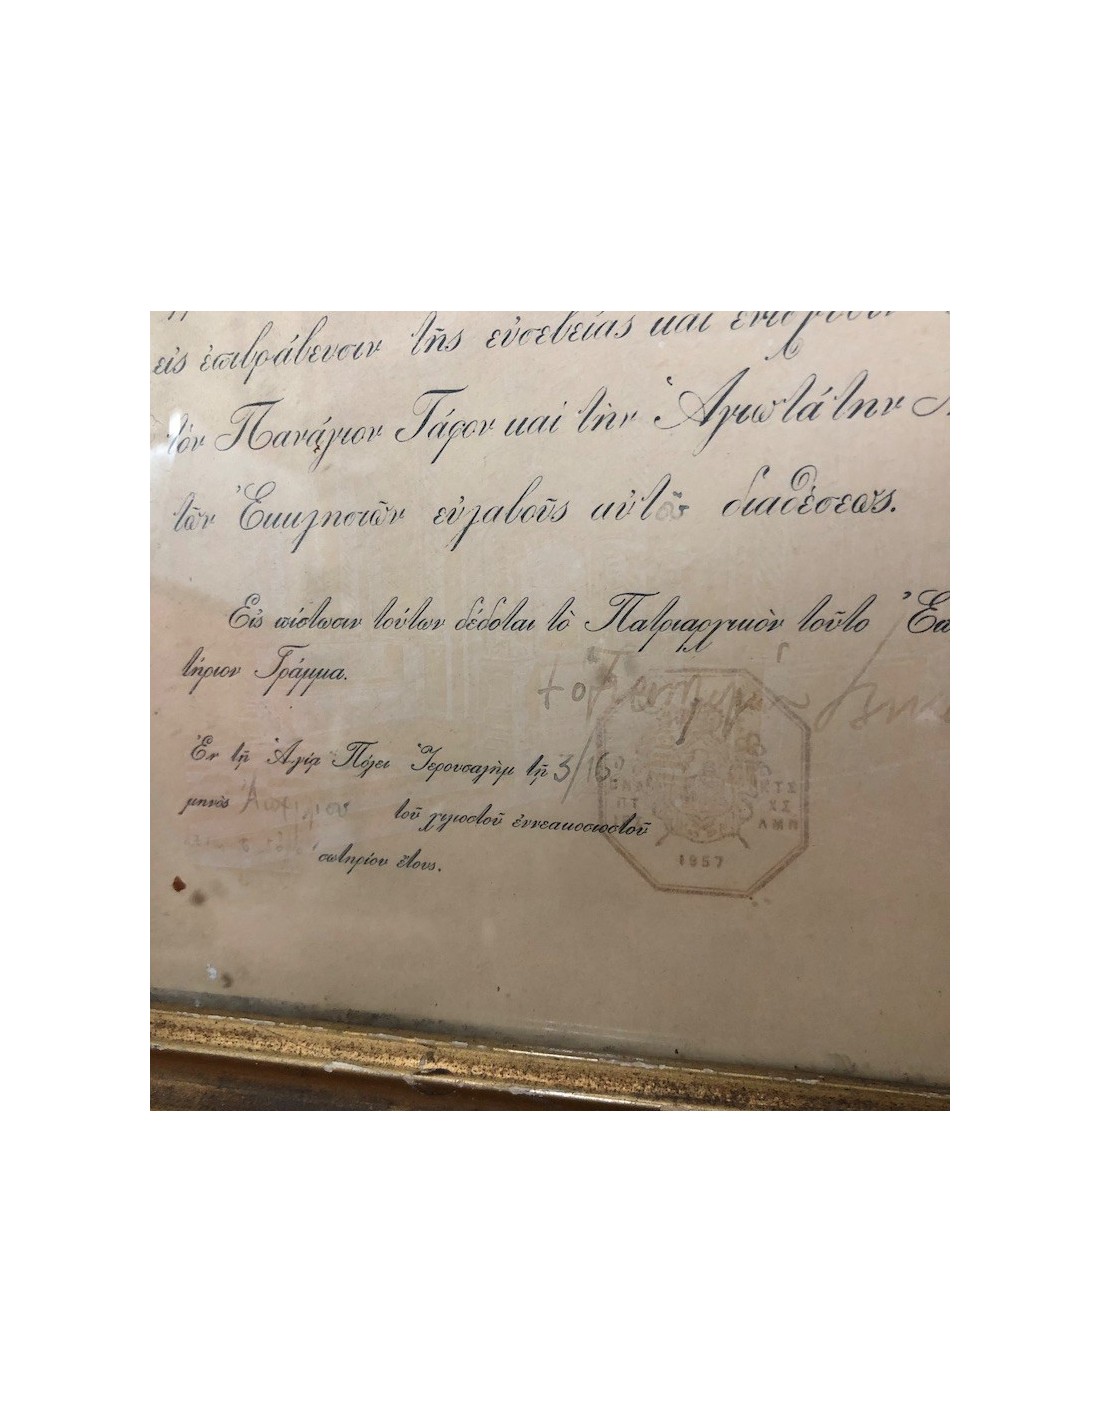 εἰς ἐπιβράβευσιν τῆς εὐσεβείας καὶ
τὸν Πανάγιον Τάφον καὶ τὴν Ἁγιωτάτην
τῶν Ἐκκλησιῶν εὐλαβοῦς αὐτοῦ διαθέσεως.
Εἰς πίστωσιν τούτων δέδοται τὸ Πατριαρχικὸν τοῦτο
τήριον Γράμμα.
Ἐν τῇ Ἁγίᾳ Πόλει Ἱερουσαλὴμ τῇ 3/16
μηνὸς Ἀπριλίου τοῦ χιλιοστοῦ ἐννεακοσιοστοῦ
σωτηρίου ἔτους.
1957